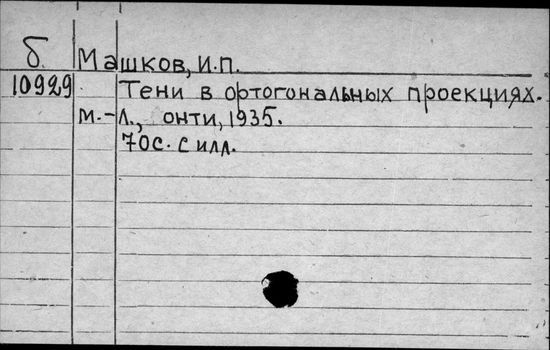 б. Машков, И.п.
10929 Тени в ортогональных проекциях.
М.-Л., онти, 1935.
70с. с илл.